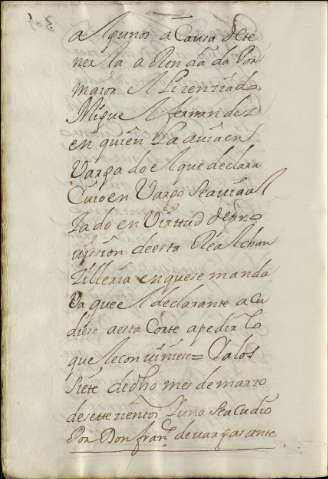 algunos a Causa de te
nerla a Rondada Por
maior el Lizenziado
Miguel fernandez
en quien la avia en
Vargado el que declara
Cuio en Vargo se avia al
zado en Virtud de pro
vision de esta Rl chan
zilleria en que se manda
va que el declarante acu
diese a esta Corte a pedir lo
que le conviniese = Ya los
siete de dho mes de marzo
de setezientos y uno se acudio
Por Don fran.co de vargas ante